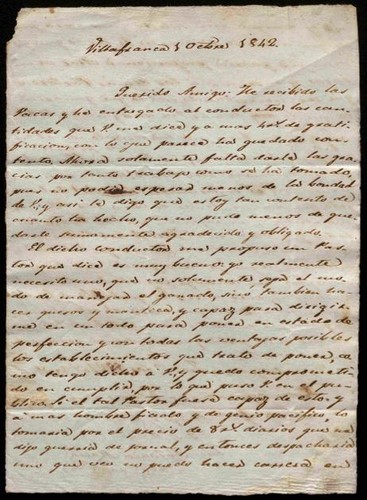 Villafranca 1 Octbre 1842.
Querido Amigo: He recibido las
Vacas y he entregado al conductor las can-
tidades que V. me dice y a mas 40 r. de grati-
ficacion, con lo que parece ha quedado con-
tento. Ahora solamente falta darle las gra-
cias por tanto trabajo como se ha tomado,
pues no podia esperar menos de la bondad
de V. y asi le digo que estoy tan contento de
cuanto ha hecho, que no puedo menos de que-
darle sumamente agradecido y obligado.
El dicho conductor me propuso un Pas-
tor que dice es muy bueno: yo realmente
necesito uno, que no solamente sepa el mo-
do de manejar el ganado, sino tambien ha-
cer quesos y manteca, y capaz para dirigir-
me en un todo para poner en estado de
perfeccion y con todas las ventajas posibles
los establecimientos que trato de poner, co-
mo tengo dicho a V. y quedo comprometi-
do en cumplir, por lo que puse en el
Si el tal Pastor fuera capaz de esto y
a mas hombre fiado y de genio pacifico, lo
tomaria por el precio de 8 r. diarios que me
dijo queria de jornal, y entonces despacharia
uno que no puede hacer carrera en